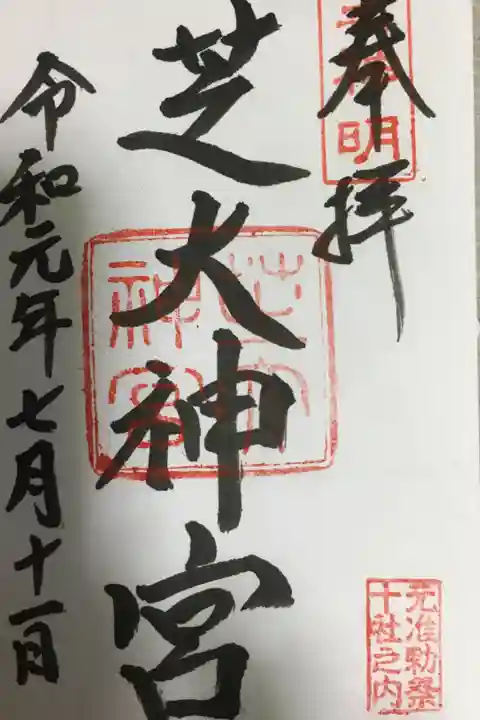 奉拝
芝大神宮
令和元年七月十一日
芝大
神宮
元准勅祭
十社之内